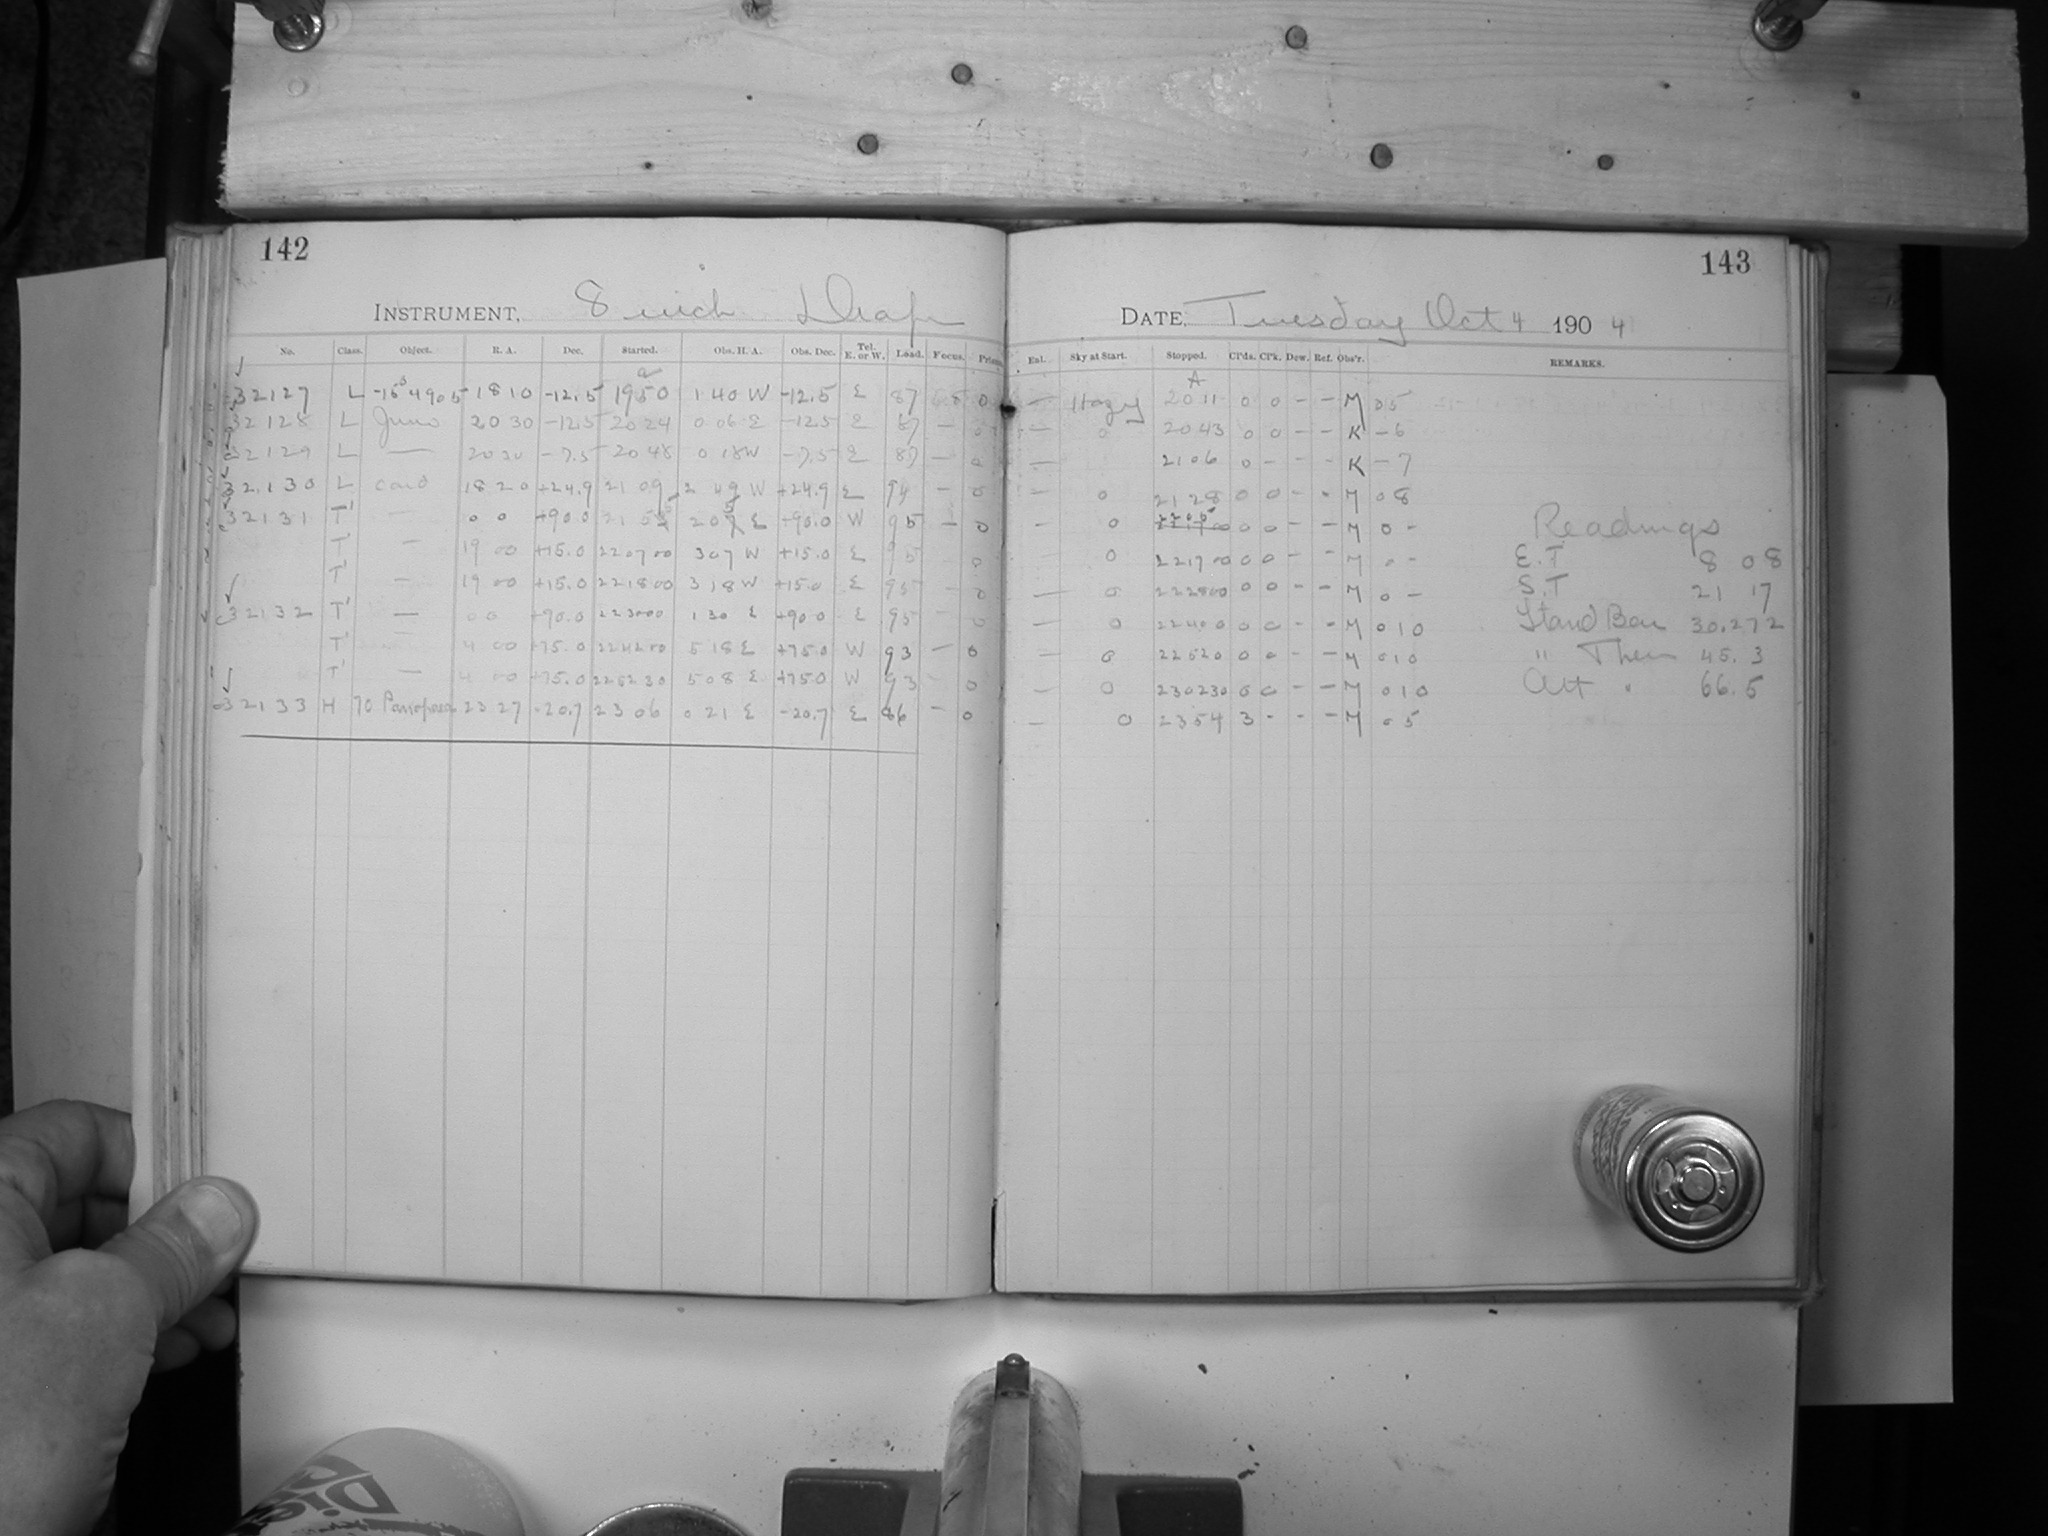 142
INSTRUMENT, 8 inch Draper
No. Class. Object. R. A. Dec. Started. Obs. H. A. Obs. Dec. Tel. E. or W. Load. Focus. Prism
32127 L -15° 4905 18 10 -12.5 19 50 1 40 W -12.5 E 87 0
32128 L Juno 20 30 -12.5 20 24 0 06 E -12.5 E 87 - 0
32129 L — 20 30 -7.5 20 48 0 18 W -7.5 E 87 - 0
32130 L card 18 20 +24.9 21 09 2 49 W +24.9 E 94 - 0
32131 T' — 0 0 +90.0 21 55 2 05 E +90.0 W 95 - 0
T' — 19 00 +15.0 22 07 00 3 07 W +15.0 E 95 0
T' — 19 00 +15.0 22 18 00 3 18 W +15.0 E 95 0
32132 T' — 0 0 +90.0 22 30 00 1 30 E +90.0 E 95 0
T' 4 00 +75.0 22 42 00 5 18 E +75.0 W 93 - 0
T' — 4 00 +75.0 22 52 30 5 08 E +75.0 W 93 0
32133 H 70 Panopaea 23 27 -20.7 23 06 0 21 E -20.7 E 86 - 0
143
DATE, Tuesday Oct 4 1904
Enl. Sky at Start. Stopped. Cl'ds. Cl'k. Dew. Ref. Obs'r. REMARKS.
A
— Hazy 20 11 0 0 - - M 0 5
— 0 20 43 0 0 - - K - 6
— 21 06 0 - - - K - 7
— 0 21 28 0 0 - - M 0 8
- 0 22 05 0 0 - - M 0 -
- 0 22 17 00 0 0 - - M 0 -
- 0 22 28 00 0 0 - - M 0 -
— 0 22 40 0 0 0 - - M 0 10
— 0 22 52 0 0 0 - - M 0 10
— 0 23 02 30 0 0 - - M 0 10
— 0 23 54 3 - - - M 0 5
Readings
E.T 8 08
S.T 21 17
Stand Bar 30.272
" Ther 45.3
Att " 66.5